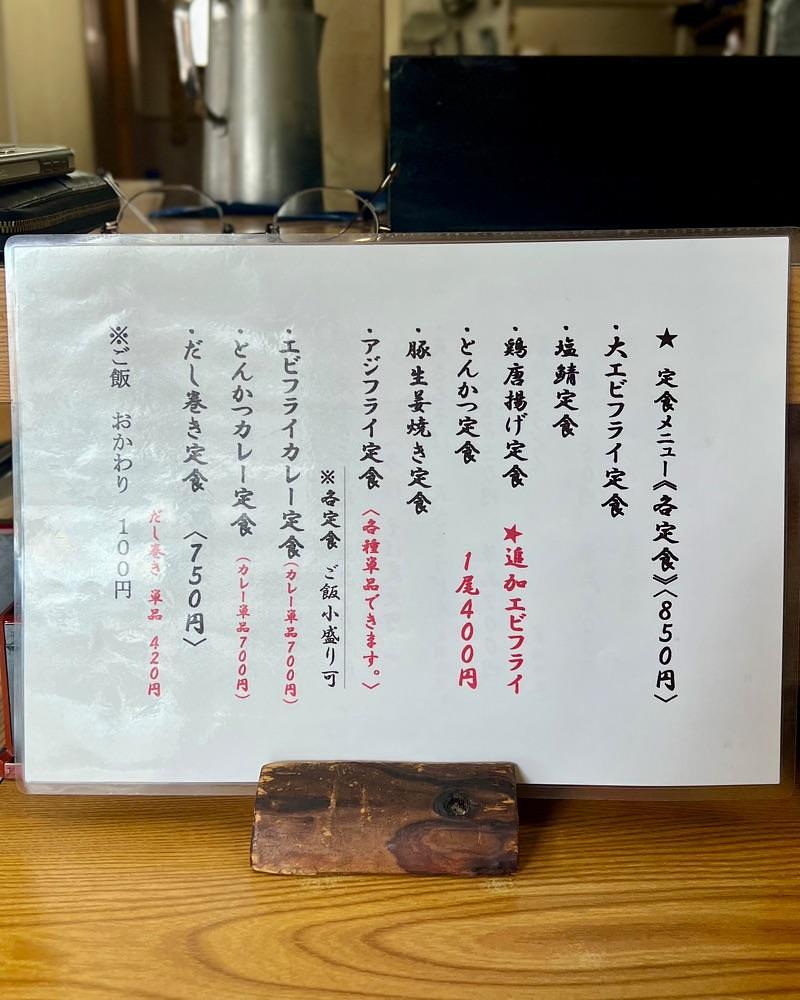 ★ 定食メニュー《各定食》〈850円〉
・大エビフライ定食
・塩鯖定食
・鶏唐揚げ定食 ★追加エビフライ
・とんかつ定食 1尾400円
・豚生姜焼き定食
・アジフライ定食〈各種単品できます。〉
※各定食 ご飯小盛り可
・エビフライカレー定食(カレー単品700円)
・とんかつカレー定食(カレー単品700円)
・だし巻き定食 〈750円〉
だし巻き 単品 420円
※ご飯 おかわり 100円